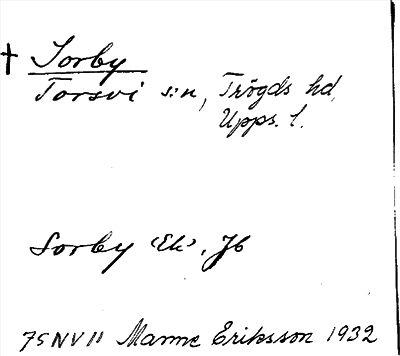 † Sorby
Torsvi s:n, Trögds hd,
Upps. l.
Sorby (Ek), Jb
75NV11 Manne Eriksson 1932